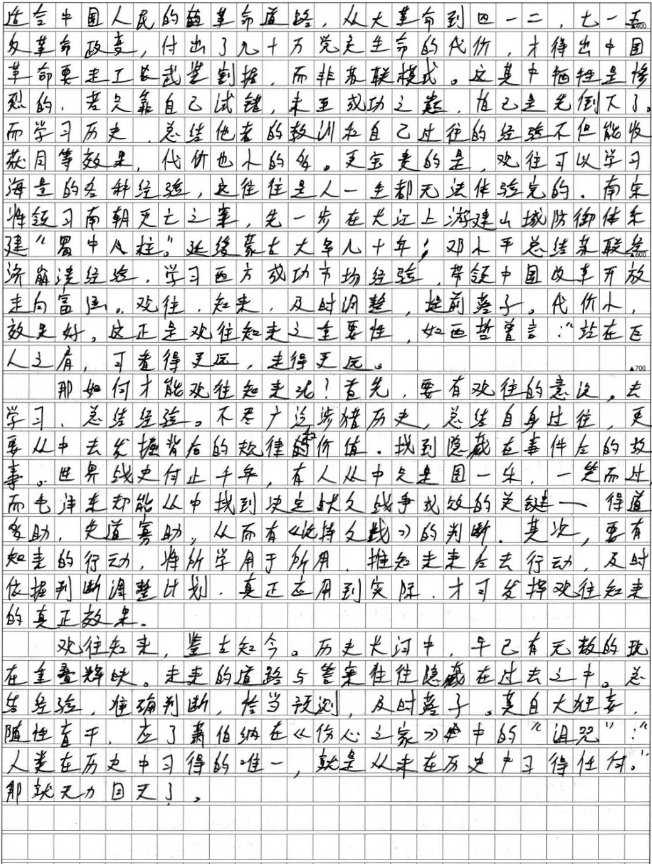 适合中国人民的革命道路，从大革命到四一二，七一五
反革命政变，付出了几十万党员生命的代价，才得出中国
革命要走工农武装割据，而非苏联模式。这其中牺牲是惨
烈的，若只靠自己试错，未至成功之巅，自己是先倒下了。
而学习历史，总结他者的教训和自己过往的经验不但能收
获同等效果，代价也小的多。更宝贵的是，观往可以学习
海量的各种经验，这往往是人一生都无法体验完的。南宋
将领习南朝灭亡之事，先一步在大江上游建山城防御体系
建“蜀中八柱”。延缓蒙古大军几十年；邓小平总结苏联经
济崩溃经验，学习西方成功市场经验，带领中国改革开放
走向富强。观往，知来，及时调整，提前落子。代价小，
效果好。这正是观往知来之重要性，如西哲曾言：“站在巨
人之肩，可看得更远，走得更远。
▲700
那如何才能观往知来呢？首先，要有观往的意识。去
学习，总结经验。不尽广泛涉猎历史，总结自身过往，更
要从中去发掘背后的规律的价值。找到隐藏在事件后的故
事。世界战史何止千年，有人从中只是图一乐，一笑而过，
而毛泽东却能从中找到决定持久战争成败的关键——得道
多助，失道寡助，从而有《论持久战》的判断。其次，要有
知来的行动，将所学用于所用，推知未来后去行动，及时
依据判断调整计划，真正应用到实际，才可发挥观往知来
的真正效果。
观往知来，鉴古知今。历史大河中，早已有无数的现
在重叠辉映。未来的道路与答案往往隐藏在过去之中。总
结经验，准确判断，恰当预测，及时落子。莫自大狂妄，
随性盲干，应了萧伯纳在《伤心之家》中的“诅咒”：“
人类在历史中习得的唯一，就是从未在历史中习得任何。”
那就无力回天了。